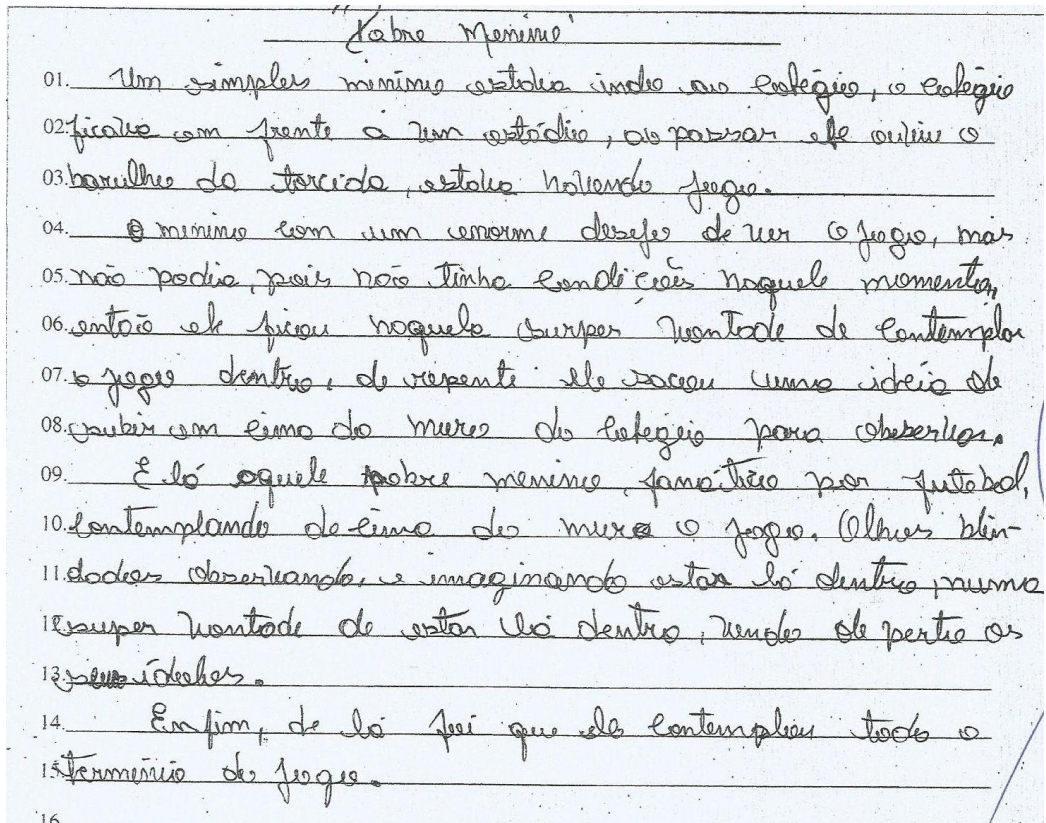 "Pobre Menino"
01. Um simples minino estava indo ao colégio, o colégio
02. ficava em frente a um estádio, ao passar ele ouviu o
03. barulho da torcida, estava havendo jogo.
04. O minino com um enorme desejo de ver o jogo, mas
05. não podia, pois não tinha condições naquele momento,
06. então ele ficou naquela surper vontade de contemplar
07. o jogo dentro, de repente ele sacou uma idéia de
08. subir em cima do muro do colégio para obeservar.
09. E lá aquele pobre menino, fanático por futebol,
10. contemplando de cima do muro o jogo. Olhos blin-
11. dados observando, e imaginando estar lá dentro, numa
12. super vontade de estar lá dentro, vendo de perto os
13. seus ídolos.
14. Enfim, de lá foi que ele contemplou todo o
15. termínio do jogo.
16